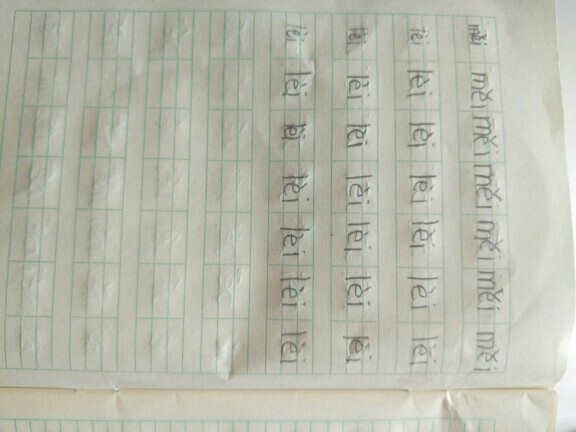 měi měi měi měi měi měi měi
lèi lèi lèi lèi lèi lèi lèi
lèi lèi lèi lèi lèi lèi lèi
lèi lèi lèi lèi lèi lèi lèi